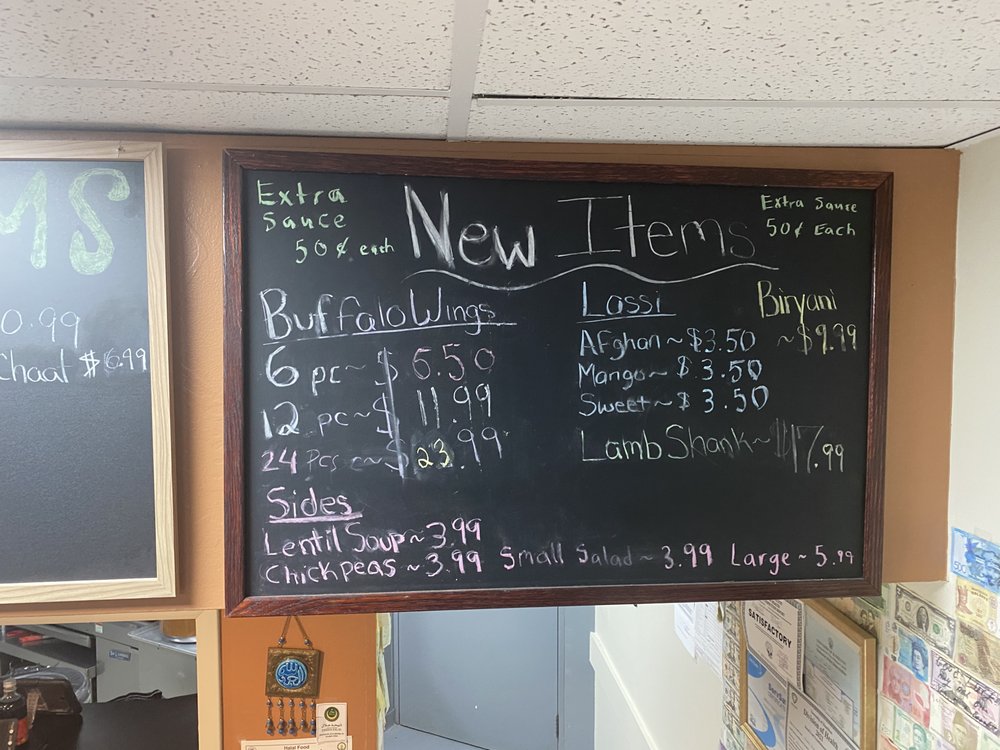 MS
0.99
Chaal $6.99
Extra
Sauce
50¢ each
New Items
Extra Sauce
50¢ Each
Buffalo Wings
6 pc~ $ 6.50
12 pc~ $ 11.99
24 Pcs ~ $ 23.99
Sides
Lentil Soup~ 3.99
Chickpeas ~ 3.99 Small Salad~ 3.99 Large ~ 5.99
Lassi
Afghan ~ $3.50
Mango~ $ 3.50
Sweet~ $ 3.50
Biryani
~$9.99
Lamb Shank~ $17.99
SATISFACTORY
Halal Food